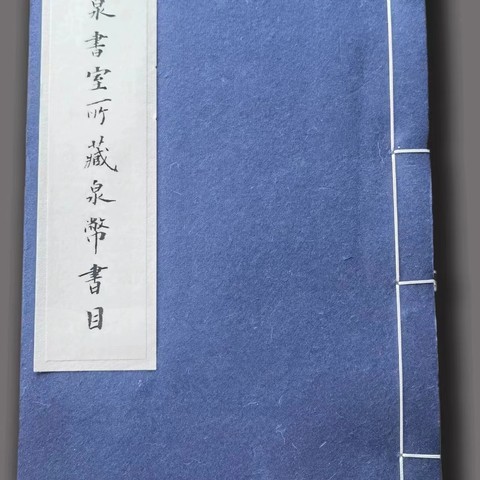 泉書室所藏泉幣書目